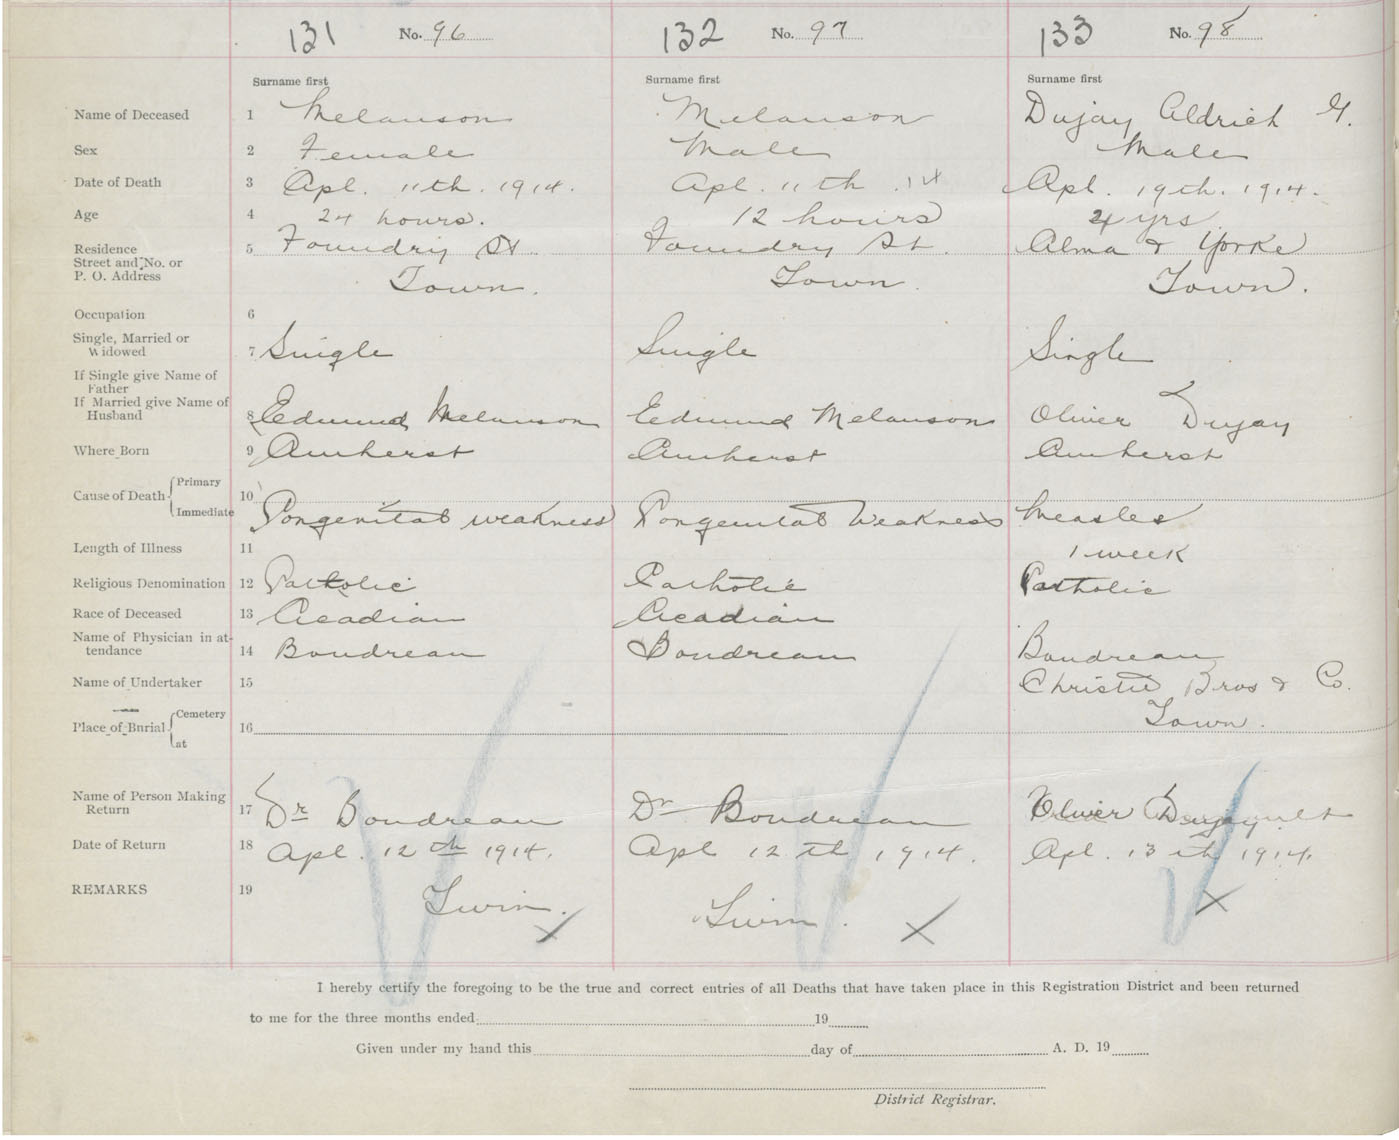 131 No. 96 132 No. 97 133 No. 98
Surname first Surname first Surname first
Name of Deceased 1 Melanson Melanson Dujay Aldrich G.
Sex 2 Female Male Male
Date of Death 3 Apl. 11th. 1914. Apl. 11th .14 Apl. 19th. 1914.
Age 4 24 hours. 12 hours 4 yrs
Residence 5 Foundry St Foundry St. Alma & Yorke
Street and No. or
P. O. Address Town. Town. Town.
Occupation 6
Single, Married or
Widowed 7 Single Single Single
If Single give Name of
Father
If Married give Name of
Husband 8 Edmund Melanson Edmund Melanson Oliver Dujay
Where Born 9 Amherst Amherst Amherst
Primary
Cause of Death 10
Immediate Congenital weakness Congenital Weakness Measles
Length of Illness 11 1 week
Religious Denomination 12 Catholic Catholic Catholic
Race of Deceased 13 Acadian Acadian
Name of Physician in at-
tendance 14 Boudreau Boudreau Boudreau
Name of Undertaker 15 Christie Bros & Co.
Cemetery Town.
Place of Burial 16
at
Name of Person Making
Return 17 Dr Boudreau Dr Boudreau Oliver
Date of Return 18 Apl. 12th 1914. Apl 12th 1914. Apl. 13th 1914.
REMARKS 19 Twin. Twin.
X X X
I hereby certify the foregoing to be the true and correct entries of all Deaths that have taken place in this Registration District and been returned
to me for the three months ended 19
Given under my hand this day of A. D. 19
District Registrar.